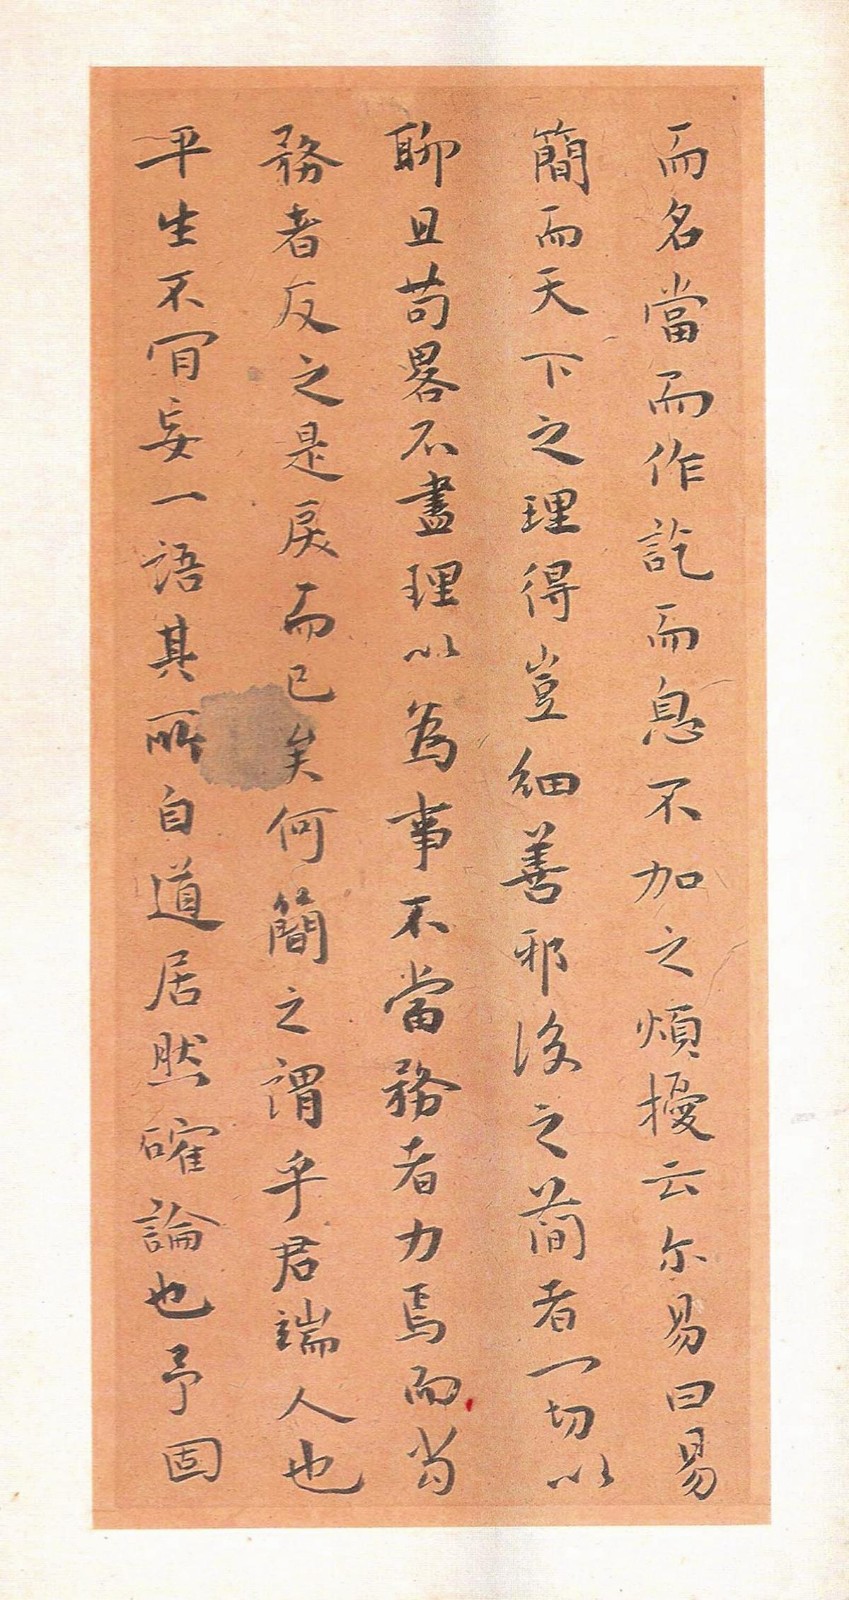 而名當而作訖而息不加之煩擾云尔易曰易
簡而天下之理得豈細善邪後之簡者一切以
聊且苟畧不盡理以為事不當務者力焉而当
務者反之是戾而已矣何簡之謂乎君端人也
平生不肎妄一語其所自道居然確論也予固